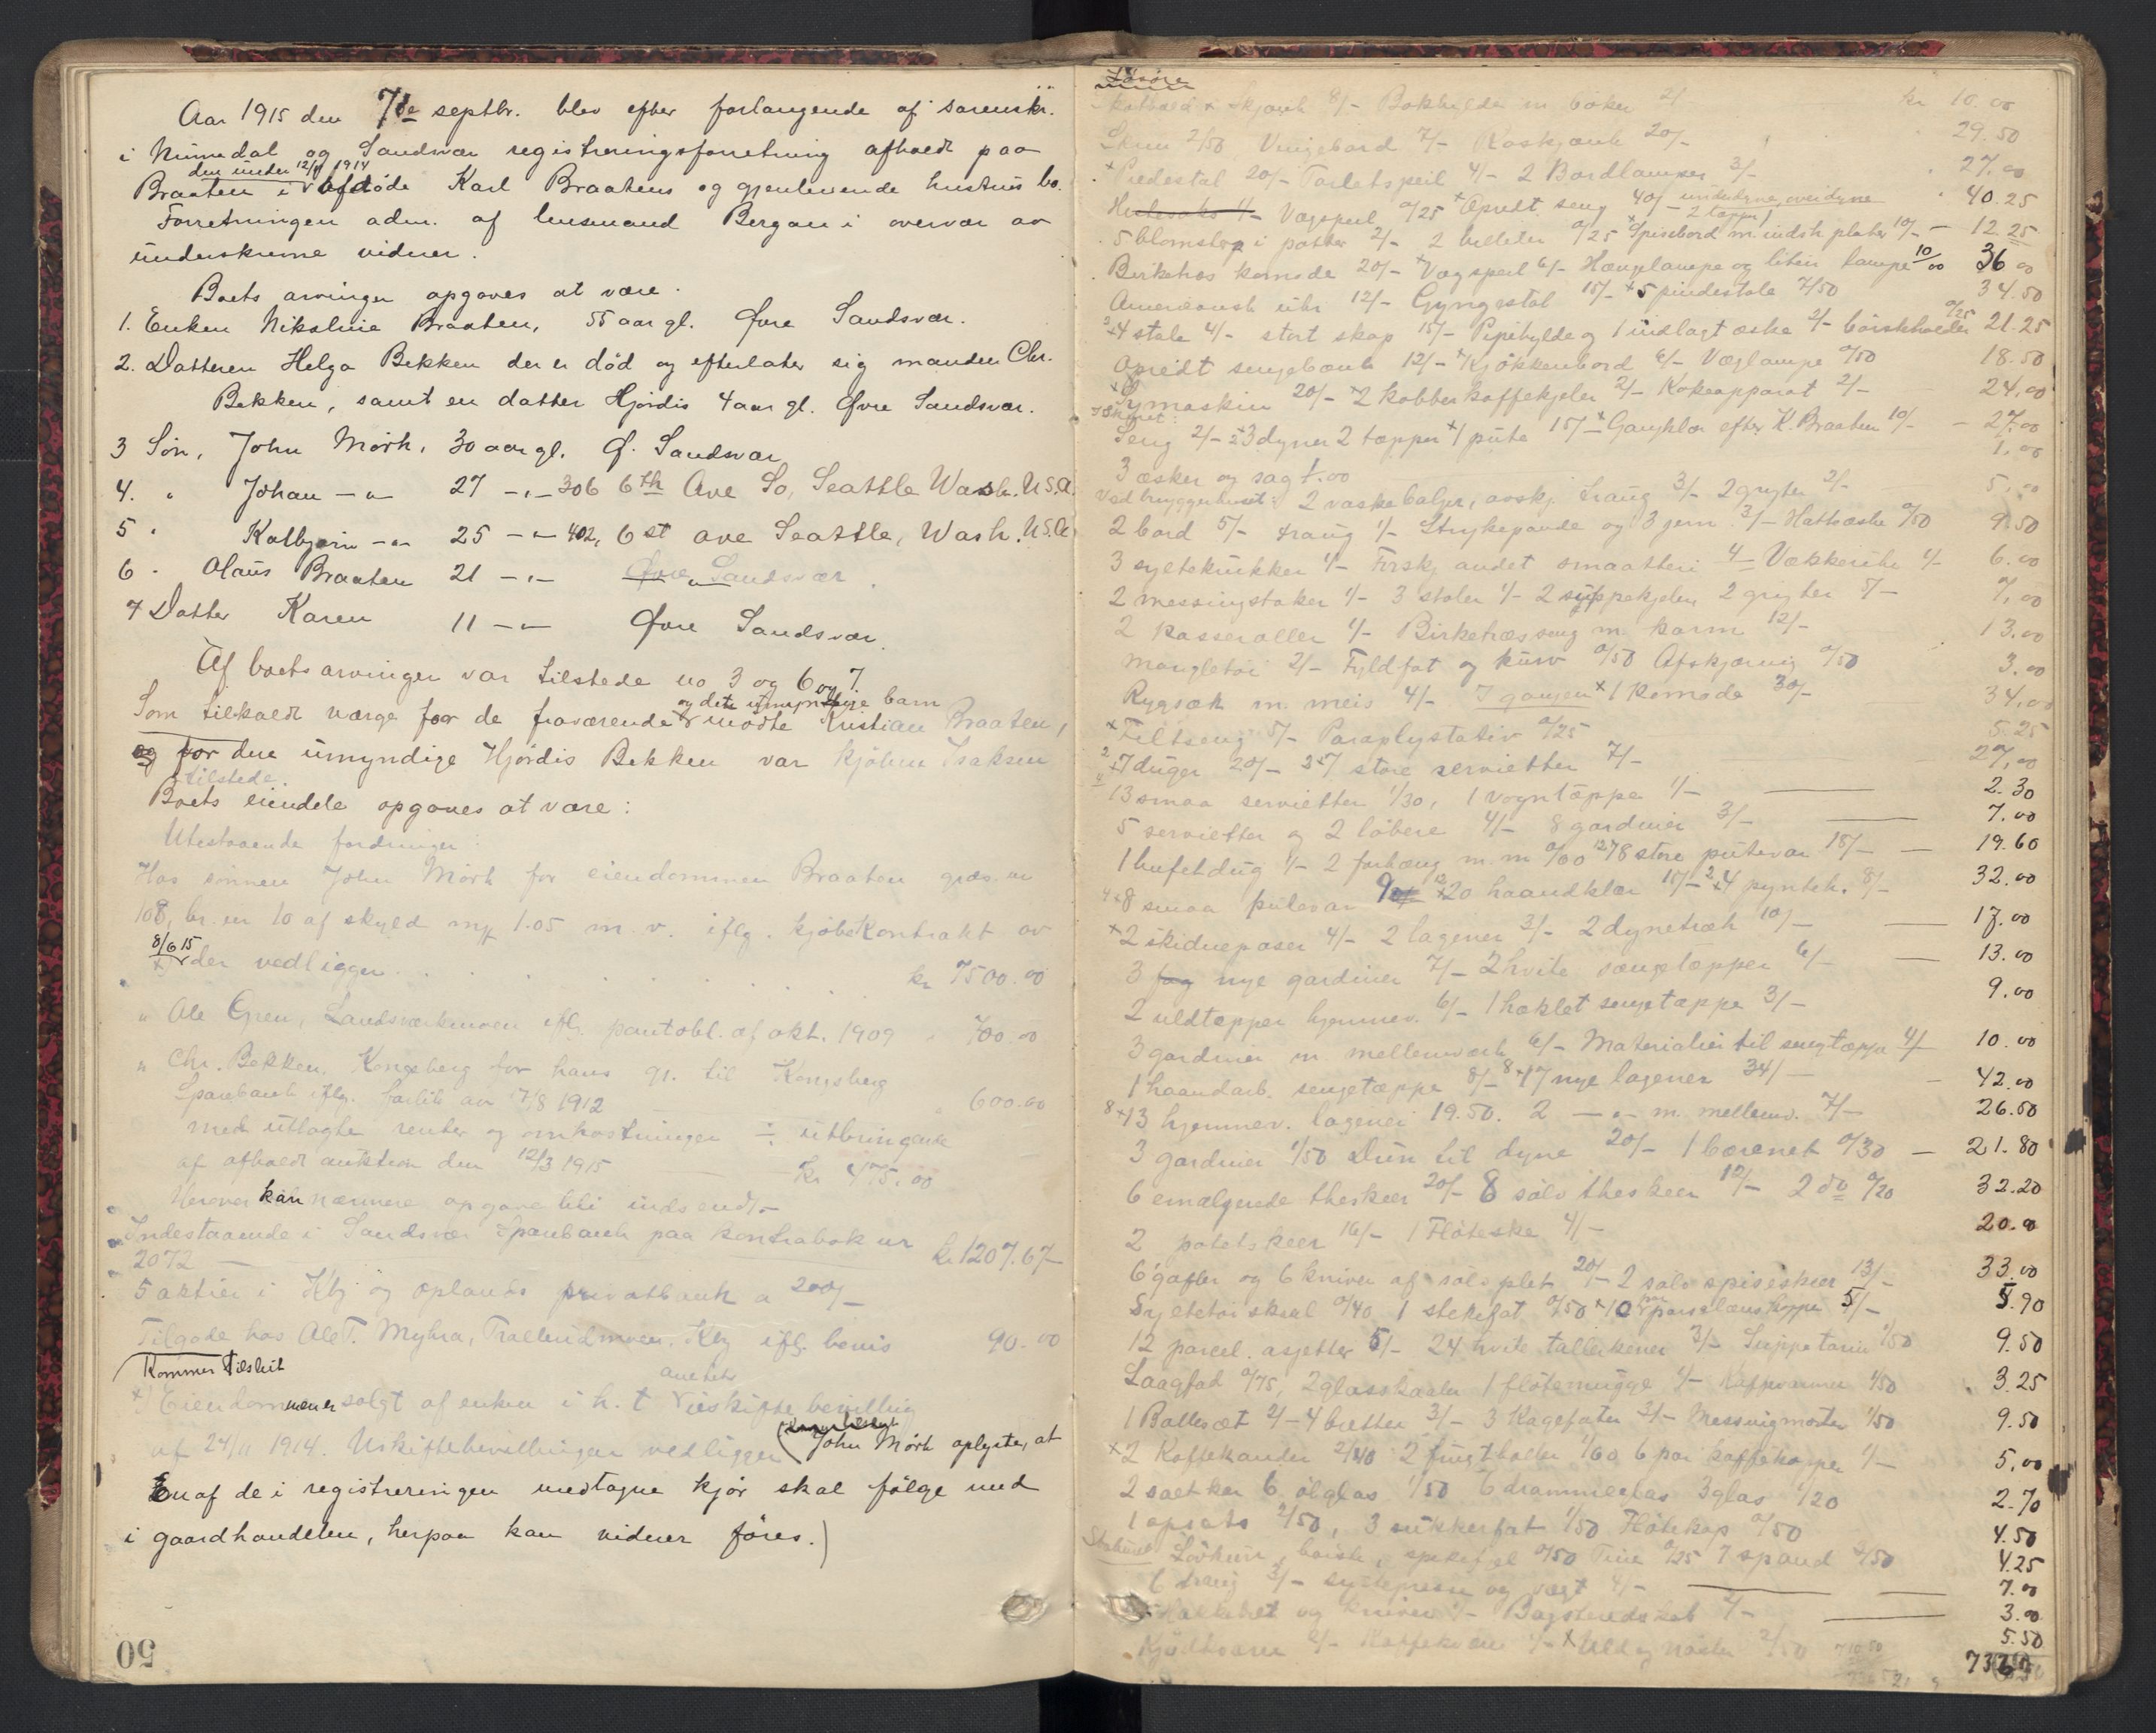 Aar 1915 den 7de septbr. blev efter forlangende af sorenskr.
i Numedal og Sandsvær registreringsforretning afholdt paa
den under 12/11 1914
Braaten i afdøde Karl Braatens og gjenlevende hustrus bo.
Forretningen adm. af lensmand Bergan i overvær av
underskrevne vidner.
Boets arvinger opgaves at være.
1. Enken Nikoline Braaten, 55 aar gl. Øvre Sandsvær.
2. Datteren Helga Bekken der er död og efterlater sig manden Chr.
Bekken, samt en datter Hjördis 4 aar gl. Øvre Sandsvær.
3 Sön, John Mörk, 30 aar gl. Ø. Sandsvær
4. " Johan -"- 27 -"- 306 6th Ave So, Seattle Wash. U.S.A.
5 " Kolbjørn -"- 25 -"- 402, 6 st ave Seattle, Wash. U.S.A.
6 " Olaus Braaten 21 -"- Øvre Sandsvær.
7 Datter Karen 11 -"- Øvre Sandsvær.
Af boets arvinger var tilstede no 3 og 6 og 7.
og det umyndige barn
Som tilkaldt værge for de fraværende mødte Kristian Braaten,
og for den umyndige Hjördis Bekken var Kjöstin Isaksen
tilstede.
Boets eiendele opgaves at være:
Utestaaende fordringer:
Hos sönnen John Mörk for eiendommen Braaten grds. nr
108, br. nr 10 af skyld mk 1.05 m. v. iflg. kjöbekontrakt av
8/6 15
x) der vedligger. kr 7500.00
" Ole Gren, Landsværkmoen iflg. pantobl. af okt. 1909 " 700.00
" Chr. Bekken, Kongsberg for hans gj. til Kongsberg
Sparebank iflg. av 7/8 1912 " 600.00
med utlagte renter og omkostninger ÷ utbringende
af afholdt auktion den 12/3 1915 Kr 475.00
Herover kan nærmere opgave bli indsendt.-
Indestaaende i Sandsvær Sparebank paa kontrabok nr
2072 kr 1207.67
5 aktier i Kbg og oplands privatbank a 200/-
Tilgode hos Ole T. Myhra, Kbg iflg. bevis 90.00
Kommer tilslut
x) Eiendommen er solgt af enken i h. t uskiftebevilling
af 24/11 1914. Uskiftebevillingen vedligger (John Mörk oplyste, at
En af de i registreringen medtagne kjør skal fölge med
i gaardhandelen, herpaa kan vidner föres.)
50
Lösöre
x Skjænk 8/- Bokhylde m böker 2/- kr 10.00
Skrin 2/50 Vingebord 7/- Roskjænk 20/- 29.50
x Piedestal 20/- Toiletspeil 4/- 2 Bordlamper 3/- 27.00
Vægspeil 0/25 x Opredt seng 40/- underdyne, overdyne 2 tæpper 40.25
5 blomster i potter 2/- 2 billeder 0/25 x Spisebord m. indsk plater 10/- 12.25
Birketræs komode 20/- x Vægspeil 6/- Hængelampe og liten lampe 10/00 36.00
Amerikansk uhr 12/- Gyngestol 15/- x 5 pindestole 7/50 34.50
x 4 stole 4/- stort skap 15/- Pipehylde og 1 indlagt æske 2/- börsteholder 0/25 21.25
Opredt sengebænk 12/- x Kjökkenbord 6/- Væglampe 0/50 18.50
x Symaskin 20/- x 2 kobberkaffekjeler 2/- Kokeapparat 2/- 24.00
Seng 2/- x 3 dyner 2 tæpper x 1 pute 15/- x Gangklær efter K. Braaten 10/- 27.00
3 æsker og sag 1.00 1.00
Ved bryggerhuset: 2 vaskebaljer, avskj. traug 3/- 2 gryter 2/- 5.00
2 bord 5/- traug 1/- Strykepande og 3 jern 3/- Hatteæske 0/50 9.50
3 syltekrukker 1/- Forskj andet smaatteri 4/- Vækkeruhr 1/- 6.00
2 messingstaker 1/- 3 stoler 1/- 2 suppekjeler, 2 gryter 5/- 7.00
2 kasseroller 1/- Birketræsseng m. karm 12/- 13.00
Mangletöi 2/- Fyldfat og kurv 0/50 Afskjærning 0/50 3.00
Rygsæk m. meis 4/- I gangen x 1 komode 30/- 34.00
x Feltseng 5/- Paraplystativ 0/25 5.25
7 duger 20/- 7 store servietter 7/- 27.00
13 smaa servietter 1/30, 1 vogntæppe 1/- 2.30
5 servietter og 2 löbere 4/- 8 gardiner 3/- 7.00
1 bufetdug 1/- 2 forhæng m.m 0/60 18 store putevar 18/- 19.60
8 smaa putevar 9/- 20 haandklær 15/- 4 pyntehk. 8/- 32.00
x 2 skidnepaser 4/- 2 lagener 3/- 2 dynetræk 10/- 17.00
3 nye gardiner 7/- 2 hvite sengetæpper 6/- 13.00
2 uldtæpper hjemmev. 6/- 1 hæklet sengetæppe 3/- 9.00
3 gardiner m mellemværk 6/- Materialier til sengtæppe 4/- 10.00
1 haandarb. sengetæppe 8/- 8 x 17 nye lagener 34/- 42.00
8 x 13 hjemmev. lagener 19.50. 2 -"- m. mellemv. 7/- 26.50
3 gardiner 1/50 Dun til dyne 20/- 1 bærenet 0/30 21.80
6 emaljerede theskeer 20/- 8 sölv theskeer 12/- 2 do 0/20 32.20
2 potetskeer 16/- 1 Flöteske 4/- 20.00
6 gafler og 6 kniver af sölvplet 20/- 2 sölv spiseskeer 13/- 33.00
Syltetöiskaal 0/40 1 stekefat 0/50 x 10 par porselænskopper 5/- 5.90
12 porcel. asjetter 5/- 24 hvite tallerkener 3/- Suppeterin 1/50 9.50
Laagfad 0/75, 2 glasskaaler 1 flötemugge 1/- Kaffevarmer 1/50 3.25
1 Bollesæt 2/- 4 bretter 3/- 3 Kagefater 3/- Messingmorter 1/50 9.50
x 2 Kaffekander 2/40 2 frugtskaaler 1/60 6 par kaffekopper 1/- 5.00
2 saltkar 6 ölglas 1/50 6 drammeglas 3 glas 1/20 2.70
1 opsats 2/50, 3 sukkerfat 1/50 Flötekop 0/50 4.50
Staburet 0/50 Tine 0/25 7 spand 3/50 4.25
6 traug 3/- syltepresse og vægt 4/- 7.00
og kniver 1/- Bagsteredskab 2/- 3.00
Kjödkværn 2/- Kaffekværn 1/- x Uld og nöster 2/50 5.50